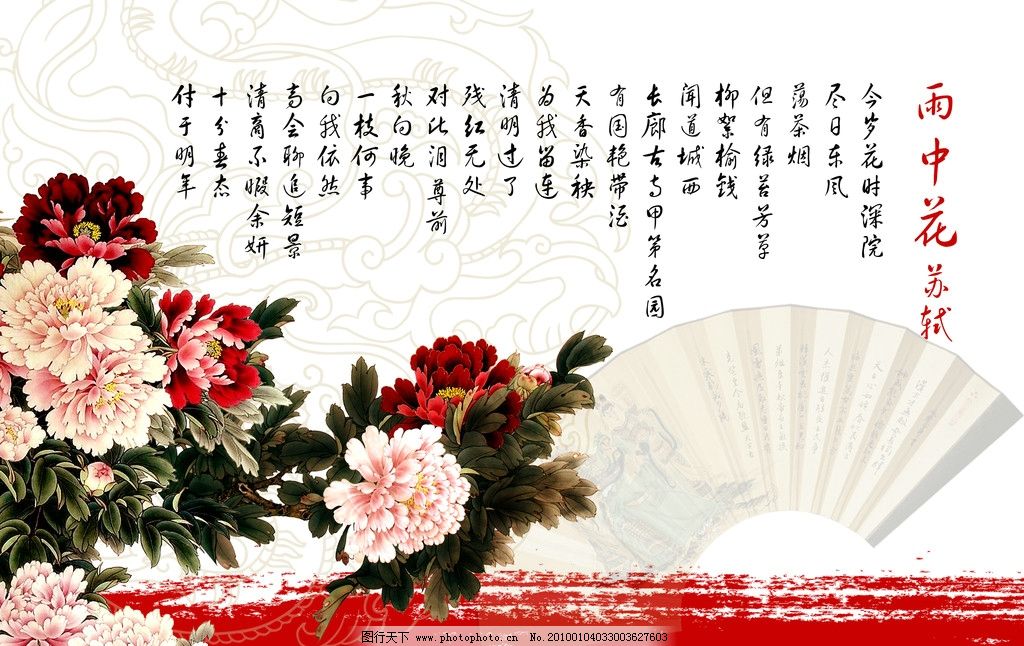 雨中花 苏轼
今岁花时深院
尽日东风
荡茶烟
但有绿苔芳草
柳絮榆钱
闻道城西
长廊古寺甲第名园
有国艳带酒
天香染袂
为我留连
清明过了
残红无处
对此泪 尊前
秋向晚
一枝何事
向我依然
高会聊追短景
清商不暇余妍
十分春态
付于明年
图行天下 www.photophoto.cn No.20100104033003627603